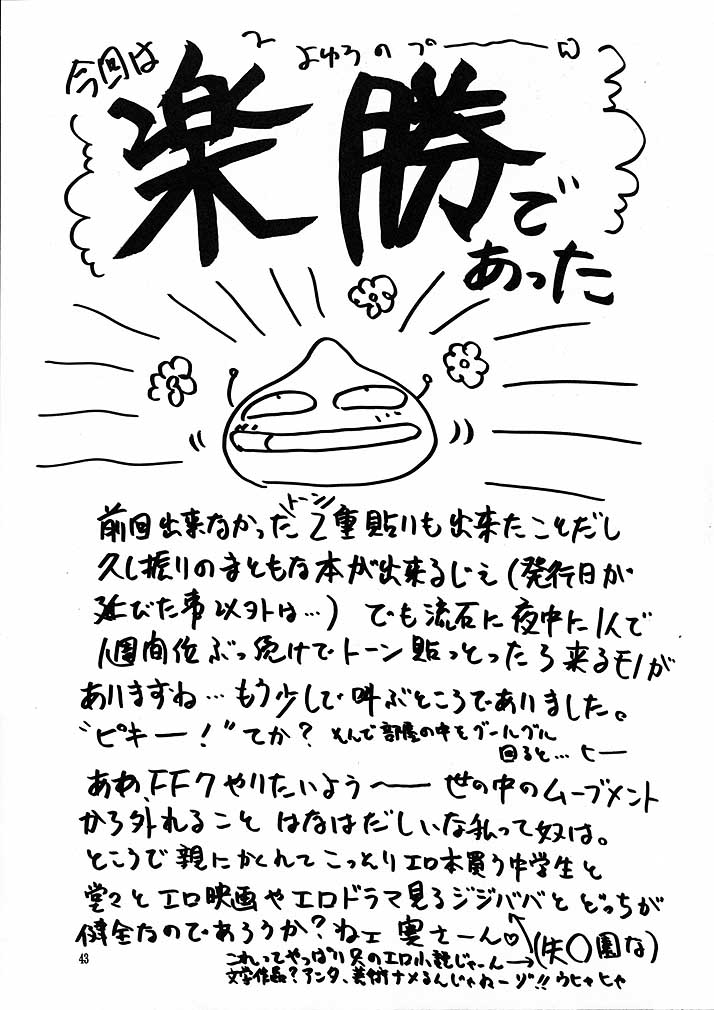 今回は
よゆうのプーーーー
楽勝で
あった
トーン
前回出来なかった 2重貼りも出来たことだし
久し振りのまともな本が出来るじぇ(発行日が
延びた事以外は…) でも流石に夜中に1人で
1週間位ぶっ続けでトーン貼っとったら来るモノが
ありますね…もう少しで叫ぶところでありました。
"ピキー!"てか? そんで部屋の中をグールグル
回ると… ヒー
ああ、FF7やりたいよう〜ー 世の中のムーブメント
から外れること はなはだしいな私って奴は。
ところで親にかくれてこっそりエロ本買う中学生と
堂々とエロ映画やエロドラマ見るジジババとどっちが
健全なのであろうか?ねェ 奥さーん♡(失〇園な)
これってやっぱり只のエロ小説じゃーん→
文学作品?アンタ、美術ナメるんじゃねーゾ!!ウヒャヒャ
43